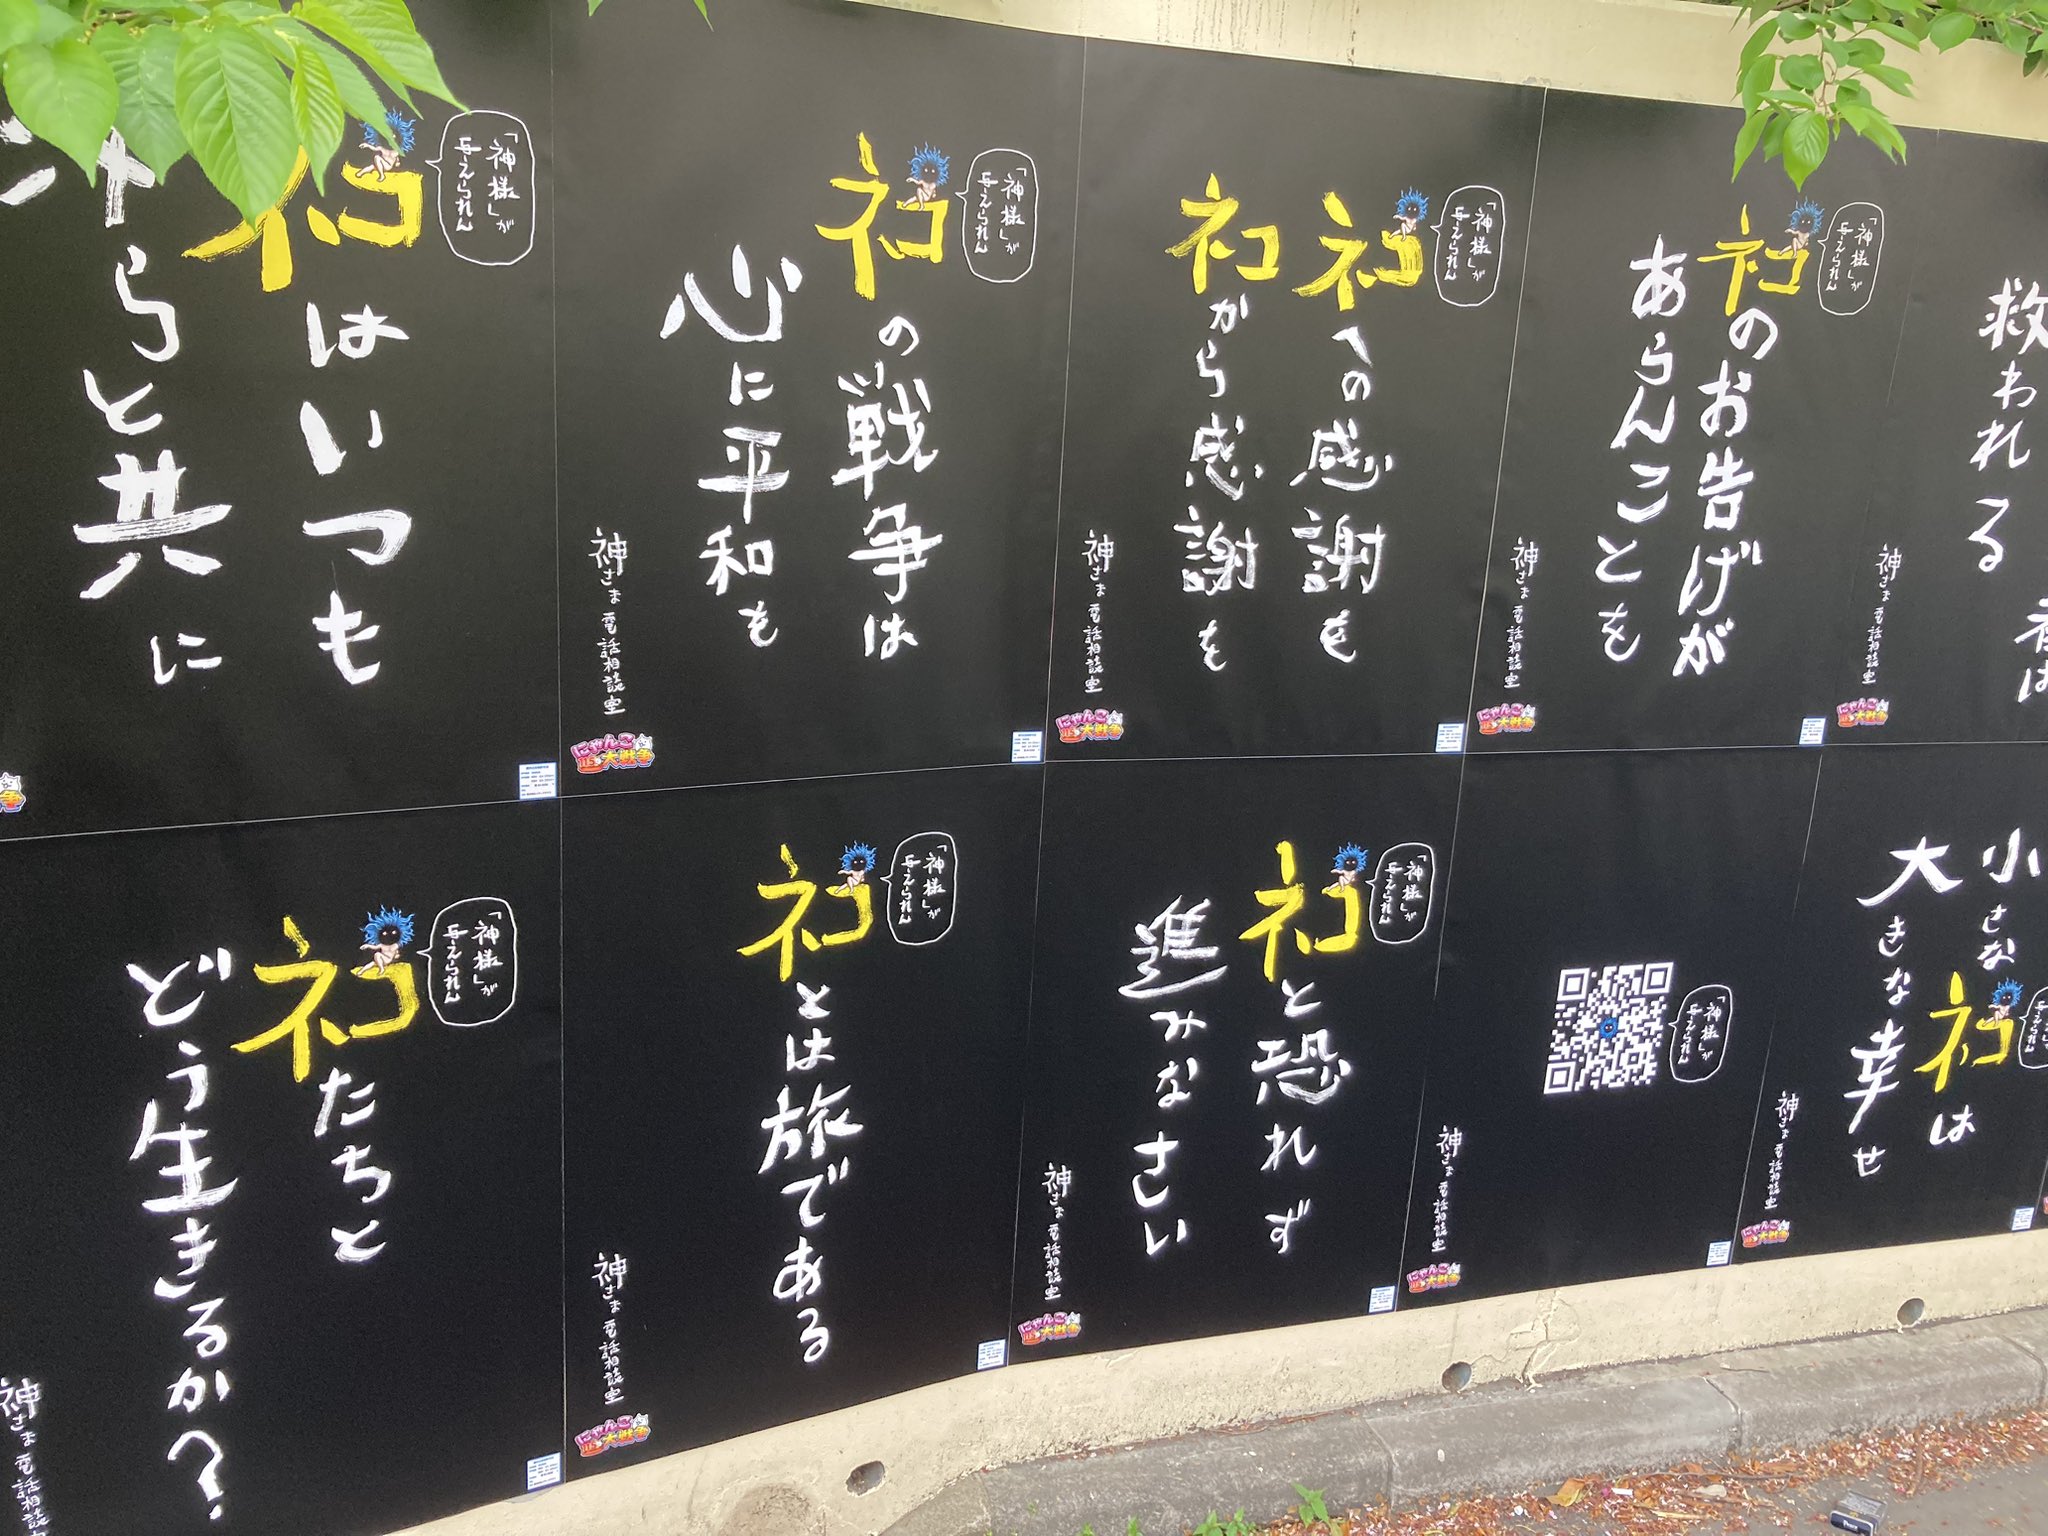 ネコはいつも
らと共に
「神様」が
与えられん
ネコの戦争は
心に平和を
「神様」が
与えられん
神さま電話相談室
にゃんこ
大戦争
ネコへの感謝を
ネコから感謝を
「神様」が
与えられん
神さま電話相談室
にゃんこ
大戦争
ネコのお告げが
あらんことを
「神様」が
与えられん
神さま電話相談室
にゃんこ
大戦争
救われる
神さま電話相談室
にゃんこ
大戦争
ネコたちと
どう生きるか?
「神様」が
与えられん
神さま電話相談室
ネコとは旅である
「神様」が
与えられん
神さま電話相談室
にゃんこ
大戦争
ネコと恐れず
進みなさい
「神様」が
与えられん
神さま電話相談室
にゃんこ
大戦争
「神様」が
与えられん
神さま電話相談室
にゃんこ
大戦争
小さなネコは
大きな幸せ
神さま電話相談室
にゃんこ
大戦争